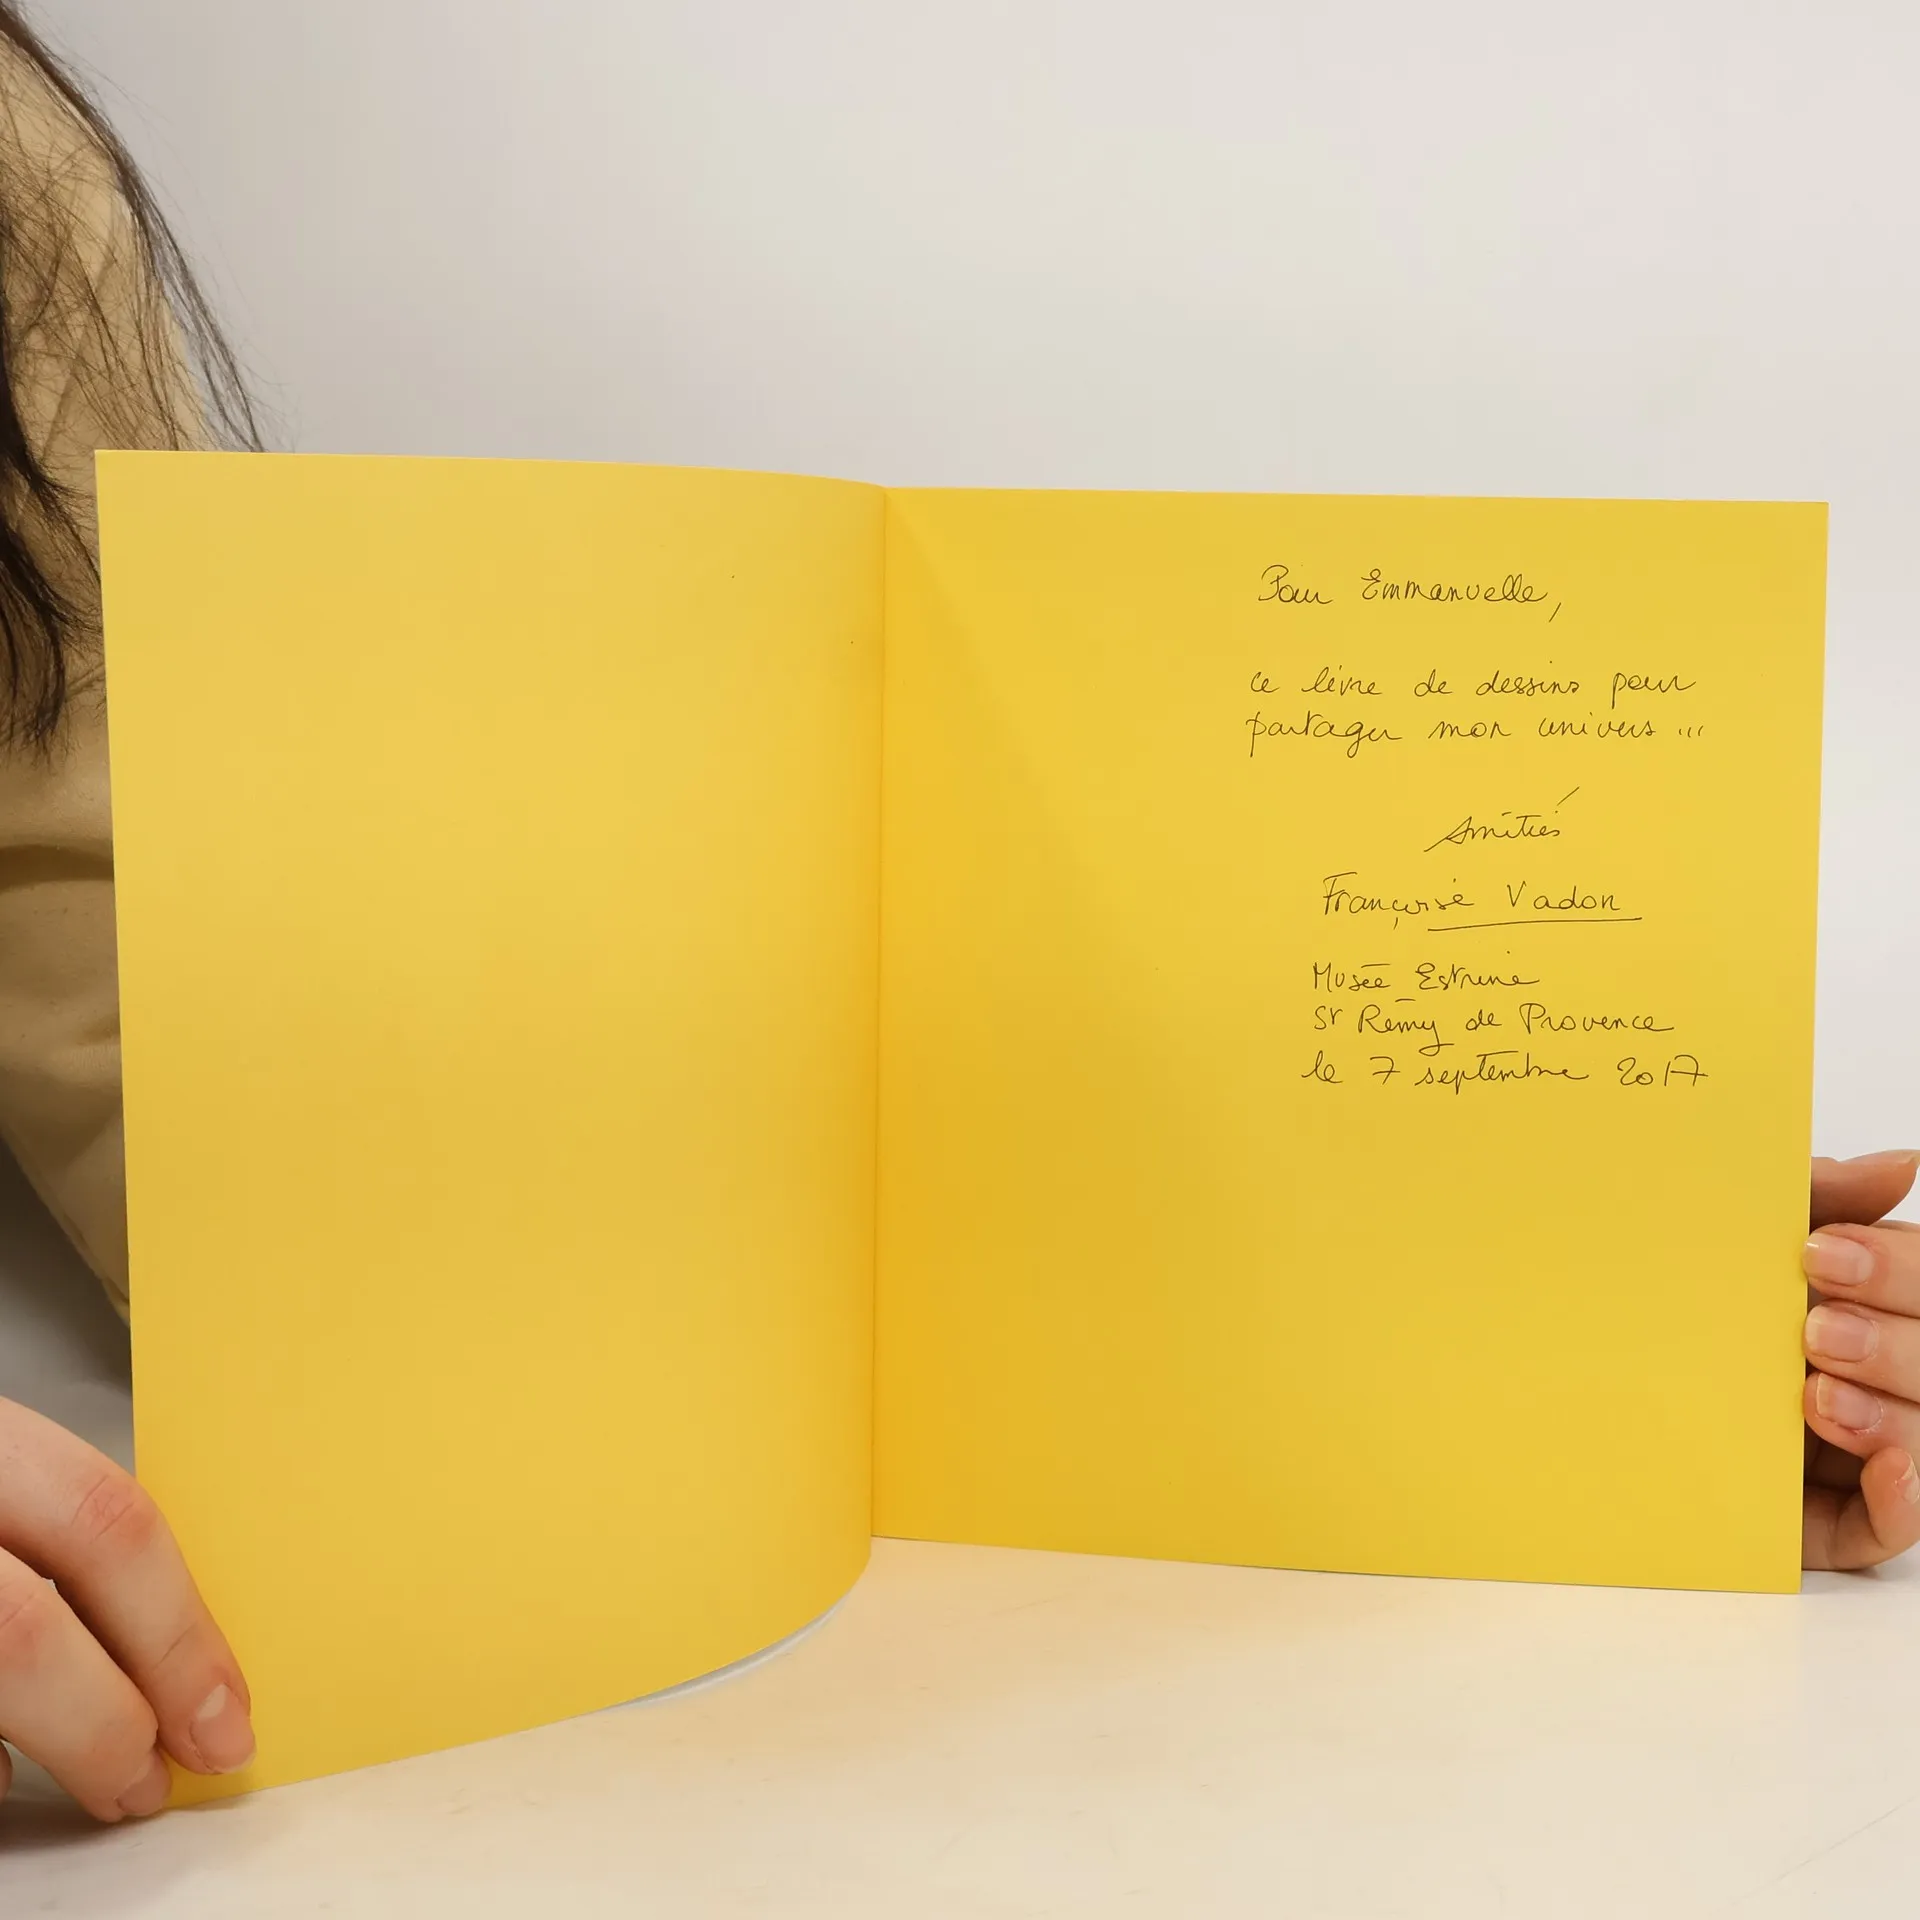 Pour Emmanuelle,
ce livre de dessins pour
partager mon univers ...
Amitiés
Françoise Vadon
Musée Estrine
St Rémy de Provence
le 7 septembre 2017